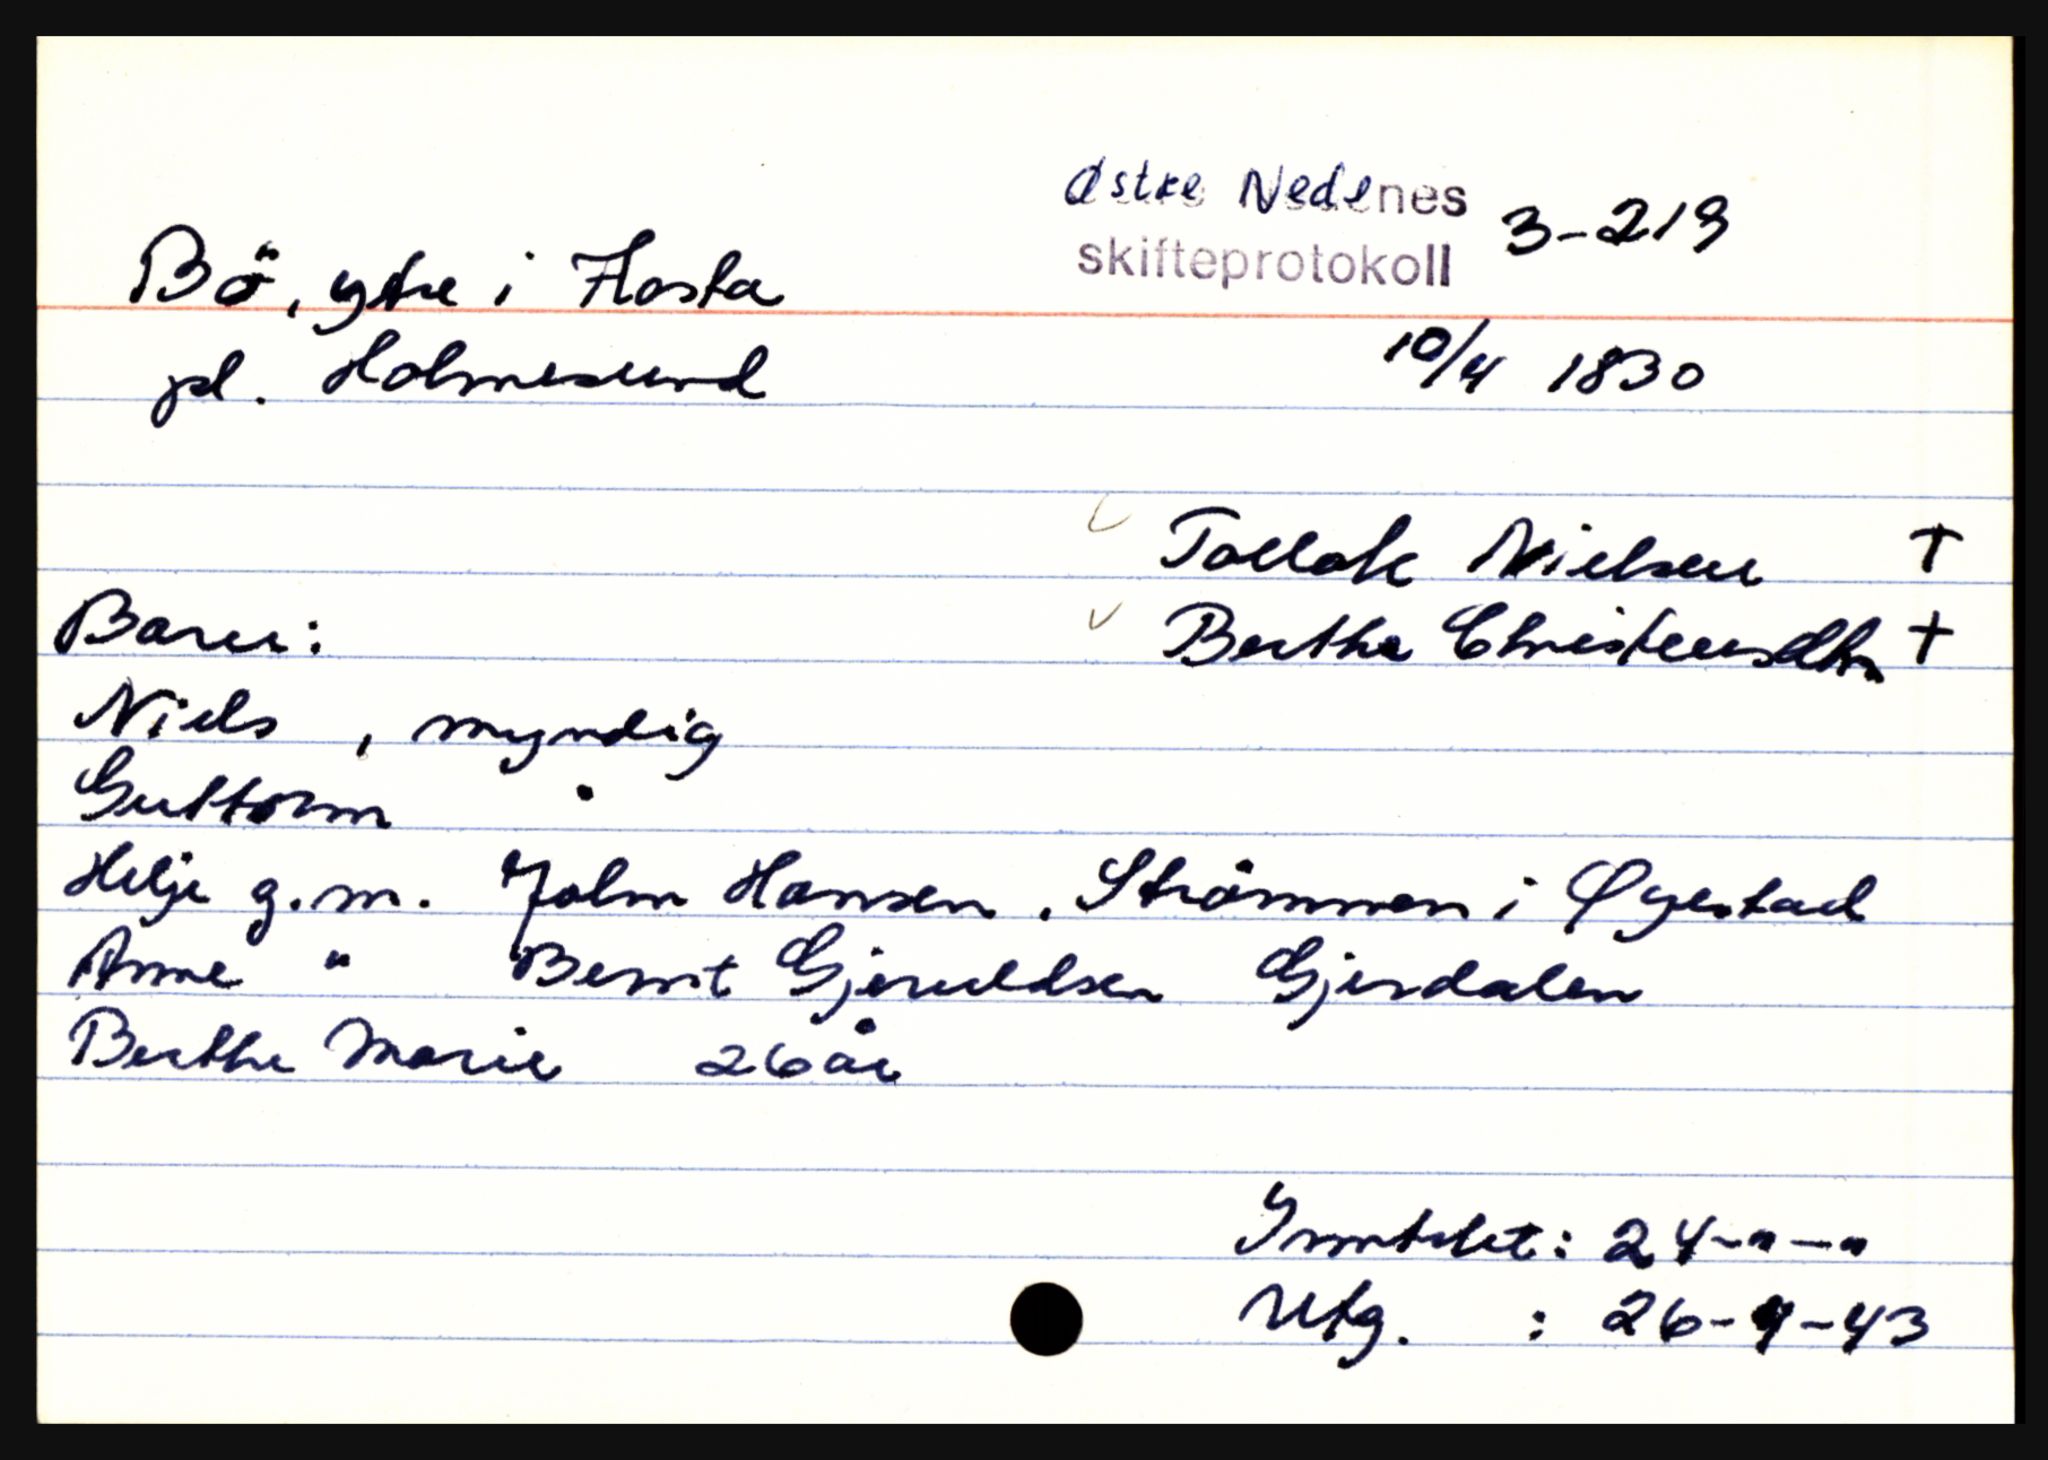 Østre Nedenes 3-219
skifteprotokoll
Bö, ytre i Flosta
pl. Holmesund
10/4 1830
Tollak Nielsen †
Berthe Christensdtr †
Barn:
Niels , myndig
Guttorm "
Helje g.m. John Hansen. Strömmen i Øyestad
Anne " Bernt Gjeruldsen Gjerdalen
Berthe Marie 26 år
Inntekt: 24-"-"
Utg. : 26-4-43